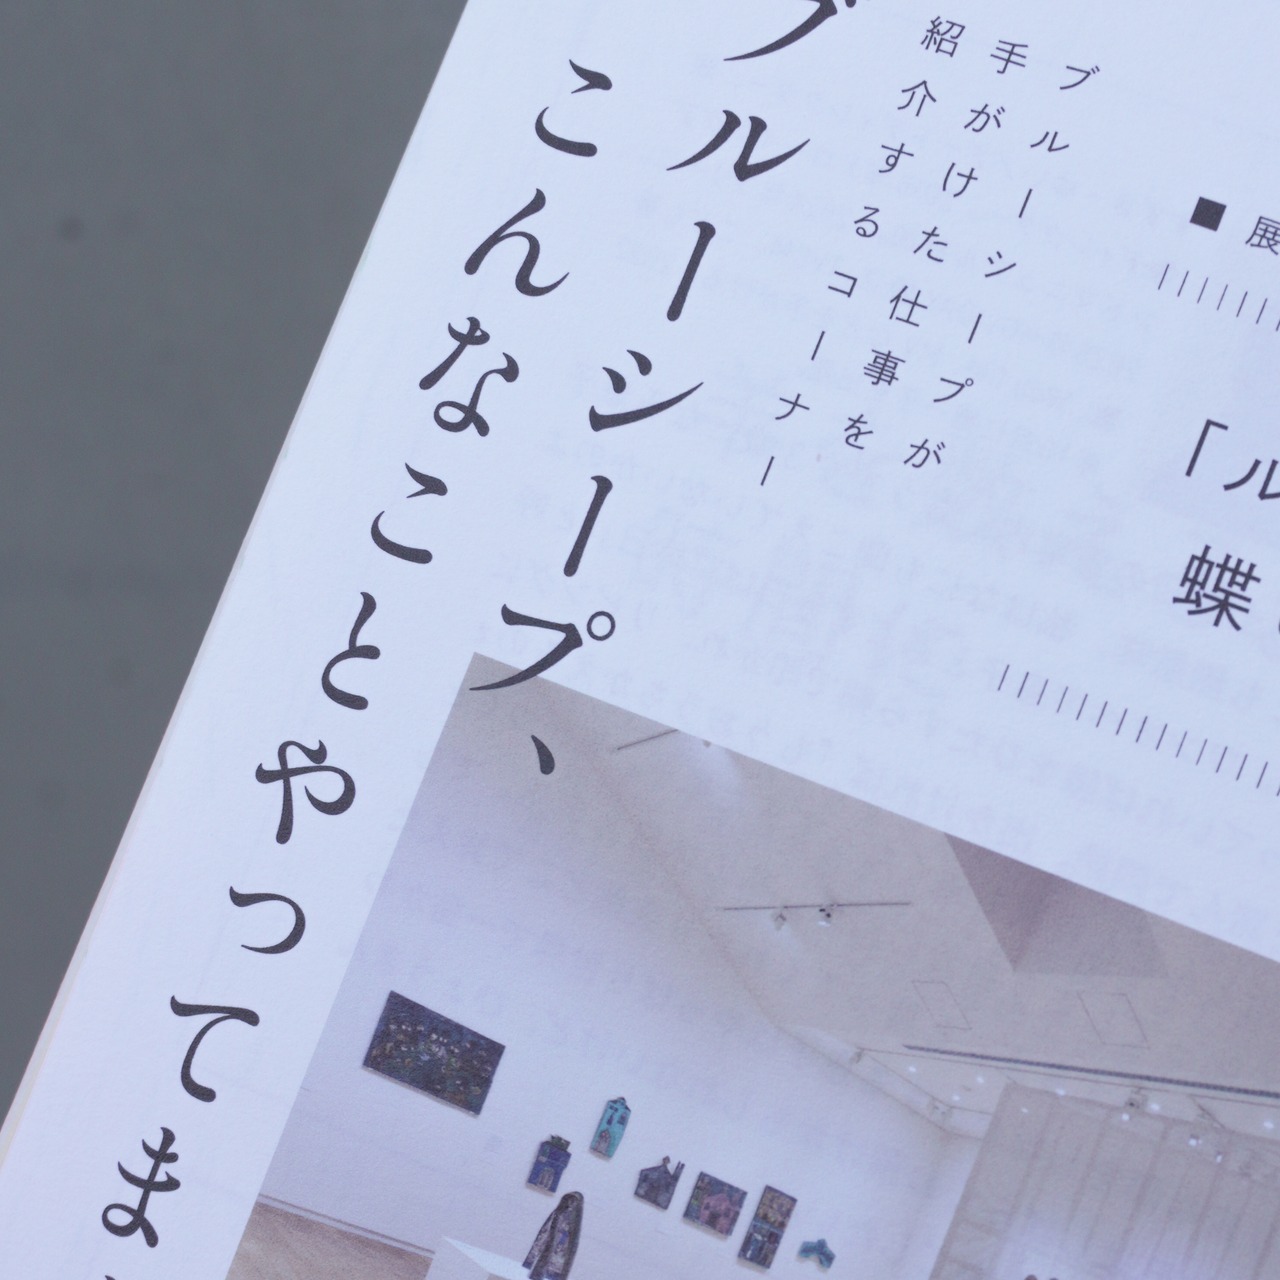 ■展
「ル
蝶
ブルーシープが
手がけた仕事を
紹介するコーナー
ブルーシープ、
こんなことやってま